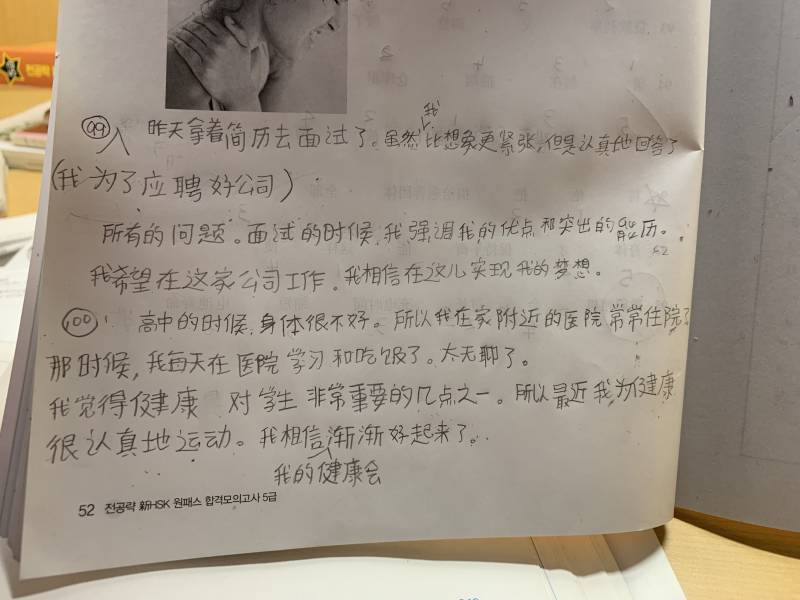 전공략
99
昨天拿着简历去面试了。虽然我比想象更紧张,但是认真地回答了
(我为了应聘好公司)
所有的问题。面试的时候,我强调我的优点和突出的 历。
我希望在这家公司工作。我相信在这儿实现我的梦想。
100
高中的时候,身体很不好。所以我在家附近的医院常常住院了
那时候,我每天在医院学习和吃饭了。太无聊了。
我觉得健康 对学生 非常重要的几点之一。所以最近我为健康
很认真地运动。我相信渐渐好起来了。
我的健康会
52 전공략 新HSK 원패스 합격모의고사 5급